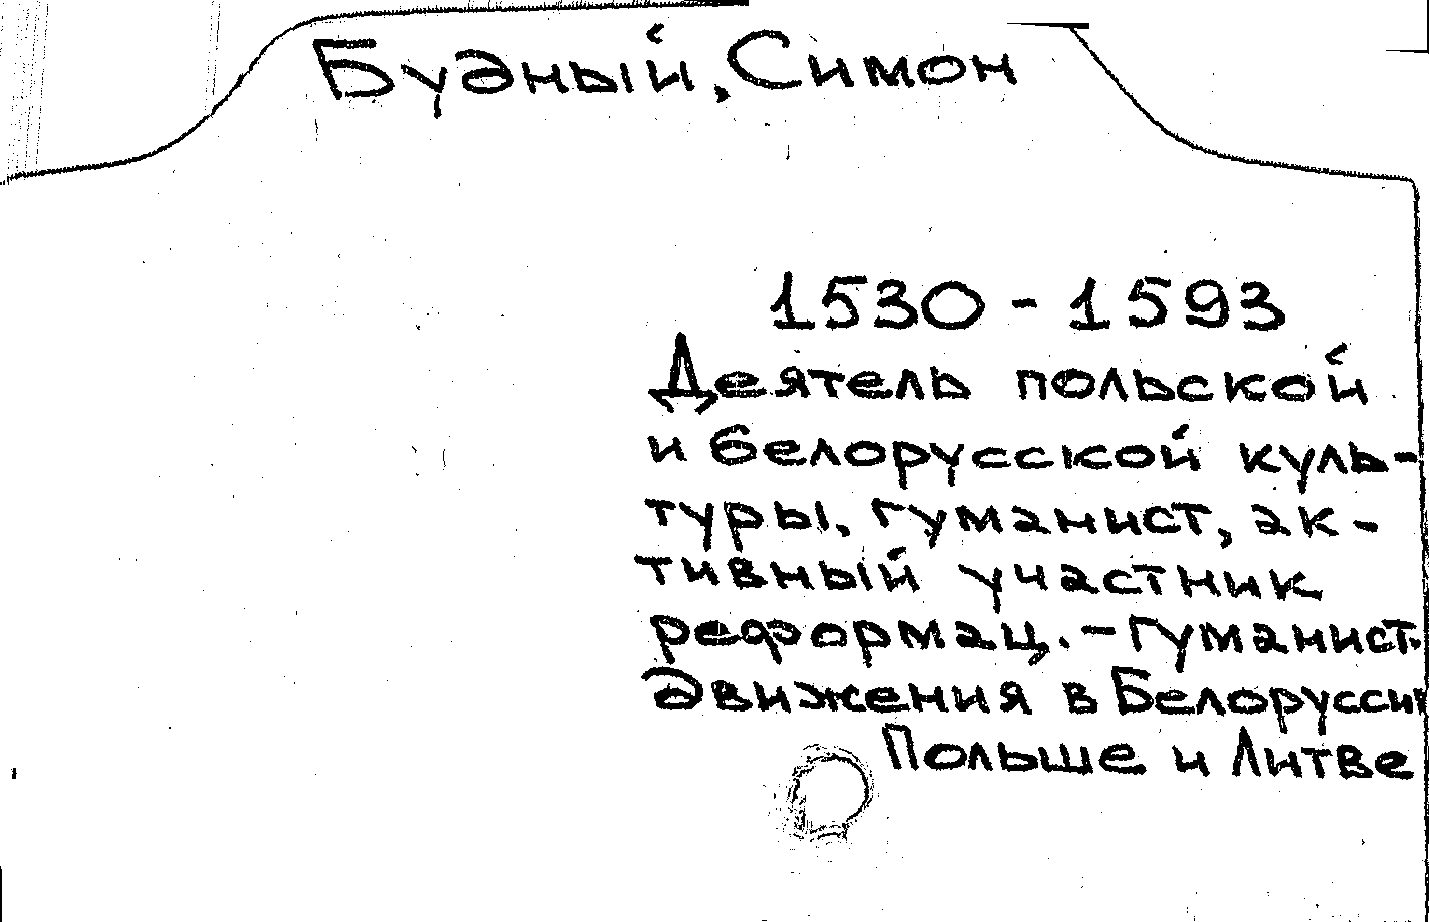 Будный, Симон
1530 - 1593
Деятель польской
и белорусской куль-
туры, гуманист, ак-
тивный участник
реформац.-гуманист.
движения в Белоруссии
Польше и Литве